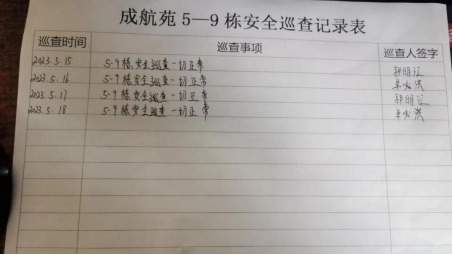 成航苑5—9栋安全巡查记录表
巡查时间 巡查事项 巡查人签字
2023.5.15 5-9栋安全巡查一切正常
2023.5.16 5-9栋安全巡查一切正常
2023.5.17 5-9栋安全巡查一切正常
2023.5.18 5-9栋安全巡查一切正常